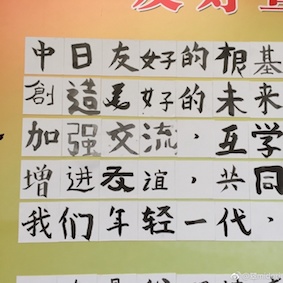 友好
中日友好的根基
創造美好的未来
加强交流，互学
增进友谊，共同
我们年轻一代，